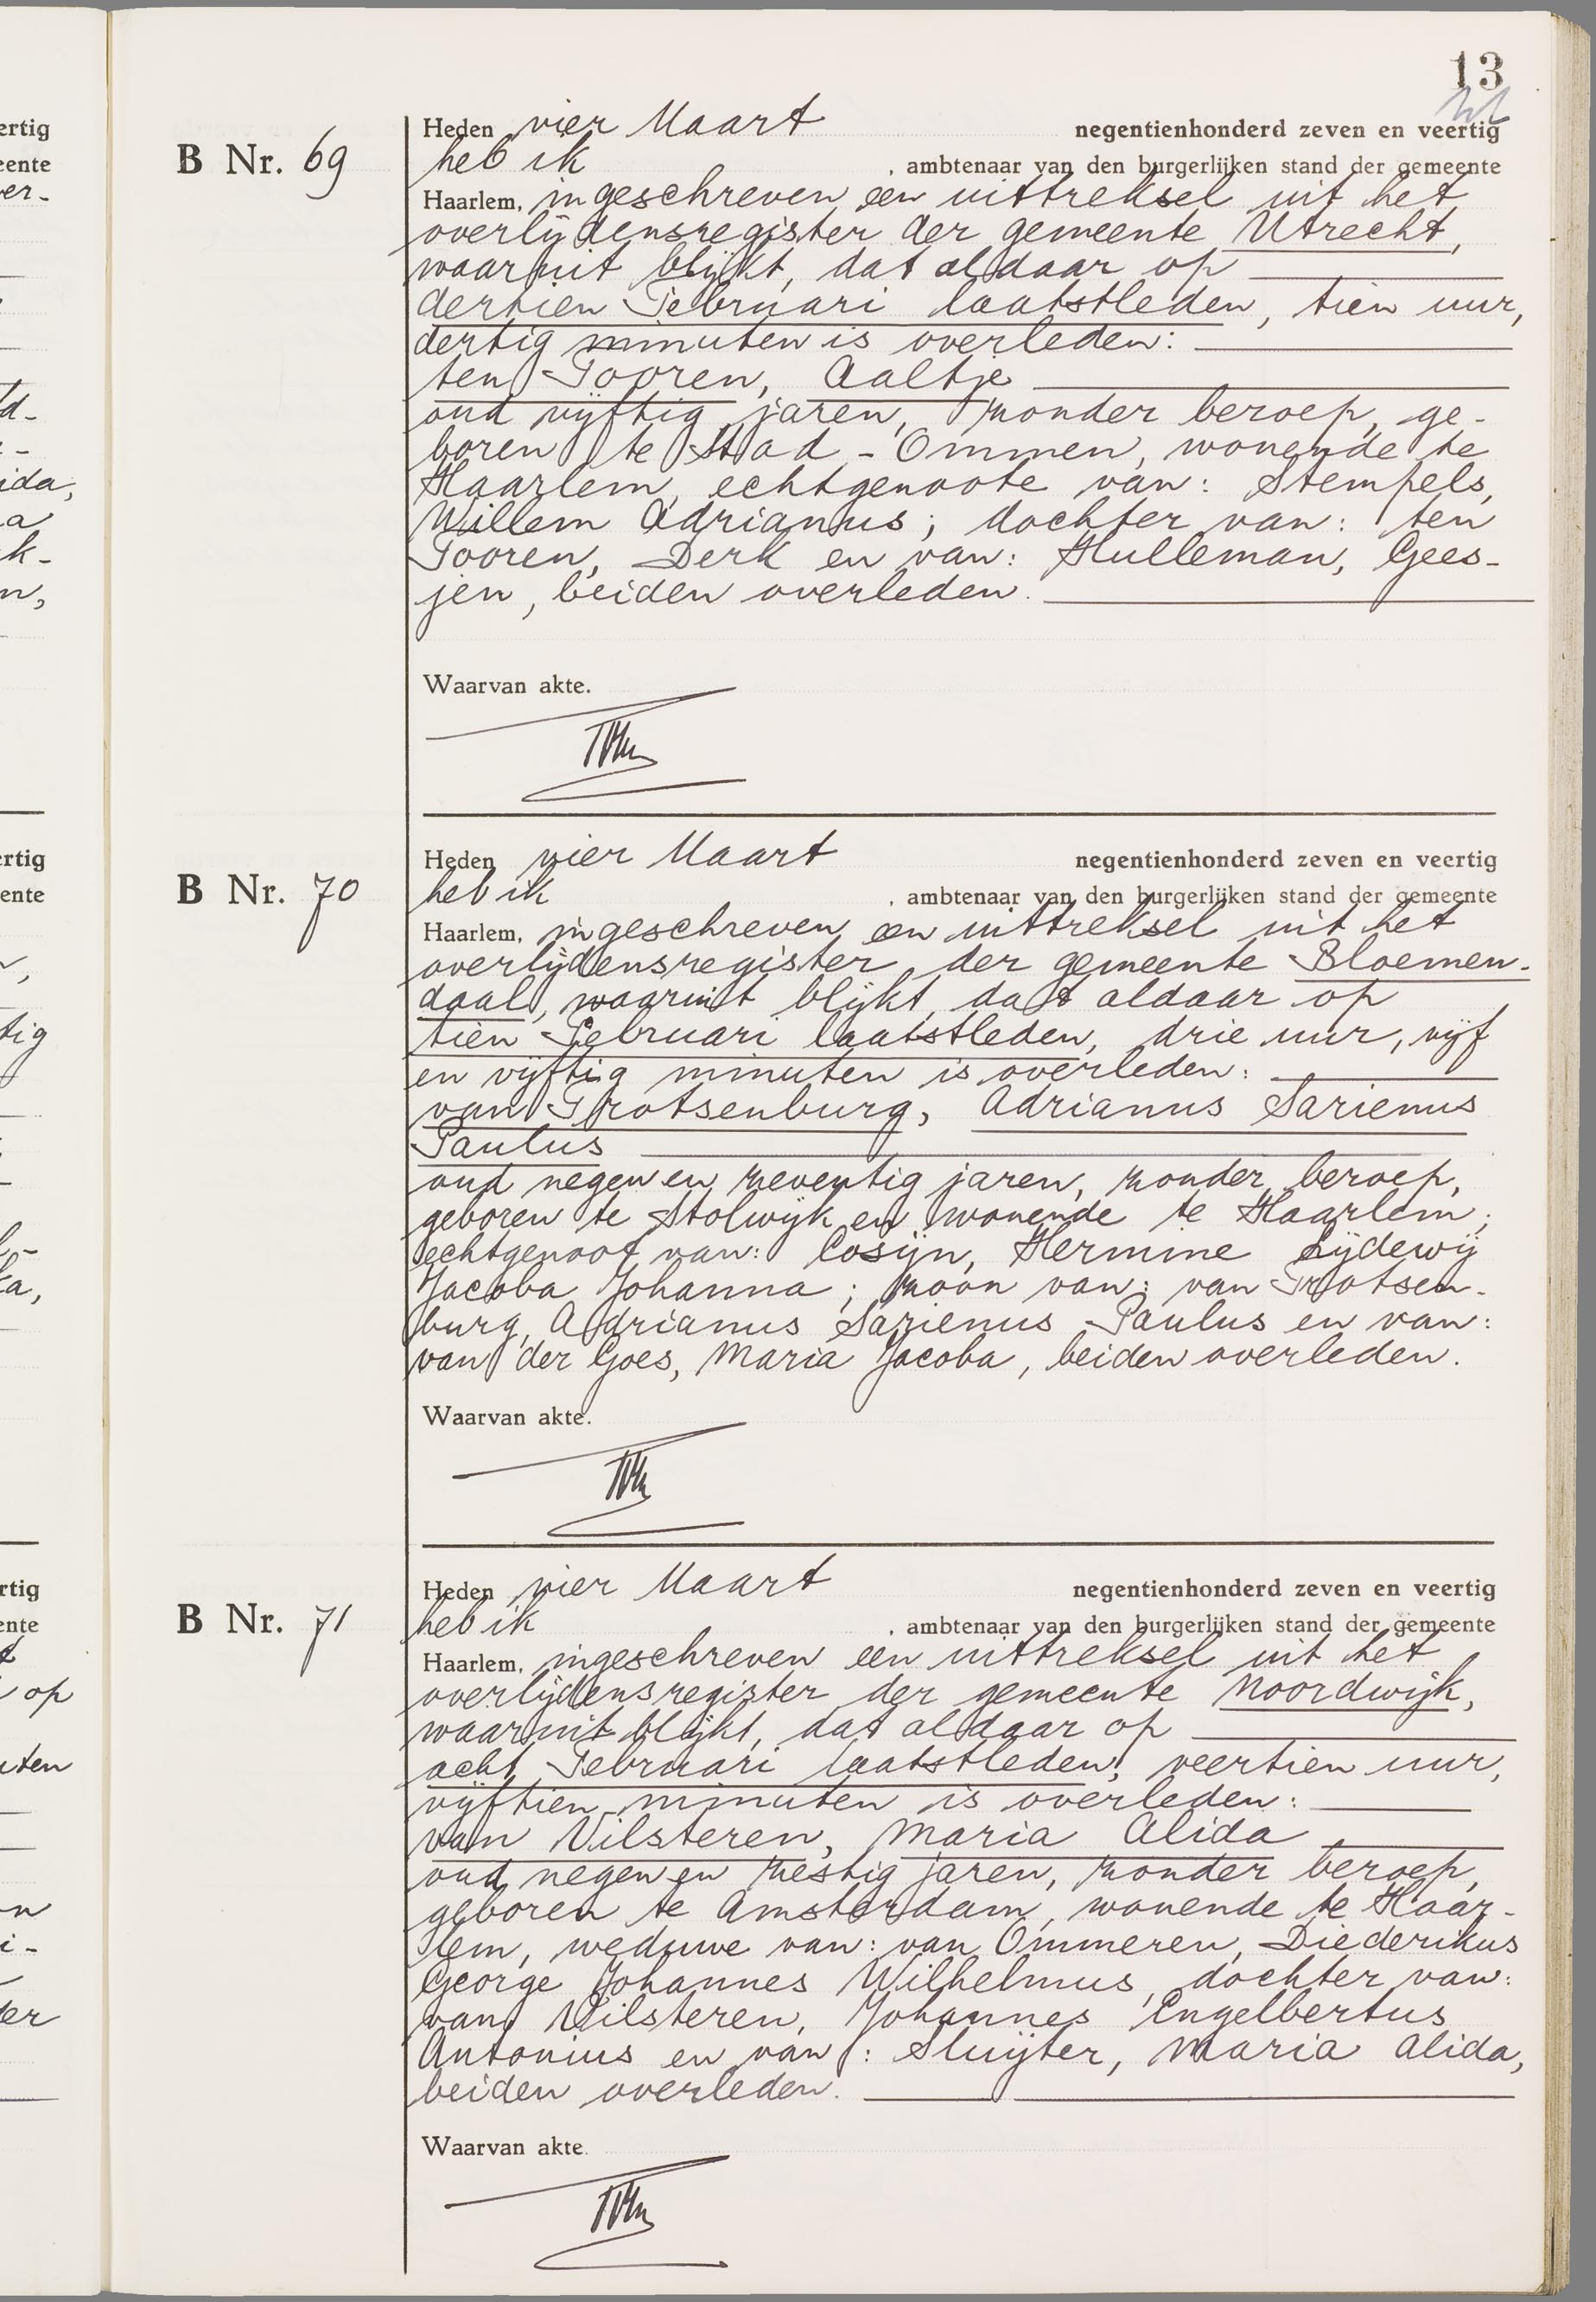 13
B Nr. 69
Heden vier Maart negentienhonderd zeven en veertig
heb ik , ambtenaar van den burgerlijken stand der gemeente
Haarlem, ingeschreven een uittreksel uit het
overlijdensregister der gemeente Utrecht,
waaruit blijkt, dat aldaar op
dertien Februari laatstleden, tien uur,
dertig minuten is overleden:
ten Tooren, Aaltje
oud vijftig jaren, zonder beroep, ge-
boren te Stad-Ommen, wonende te
Haarlem, echtgenoote van: Stempels,
Willem Adrianus; dochter van: ten
Tooren, Derk en van: Hulleman, Gees-
jen, beiden overleden.
Waarvan akte.
B Nr. 70
Heden vier Maart negentienhonderd zeven en veertig
heb ik , ambtenaar van den burgerlijken stand der gemeente
Haarlem, ingeschreven een uittreksel uit het
overlijdensregister der gemeente Bloemen-
daal, waaruit blijkt, dat aldaar op
tien Februari laatstleden, drie uur, vijf
en vijftig minuten is overleden:
van Trotsenburg, Adrianus Sarienus
Paulus
oud negen en zeventig jaren, zonder beroep,
geboren te Stolwijk en wonende te Haarlem;
echtgenoot van: Cosijn, Hermine Lijdewij
Jacoba Johanna; zoon van: van Trotsen-
burg, Adrianus Sarienus Paulus en van:
van der Goes, Maria Jacoba, beiden overleden.
Waarvan akte.
B Nr. 71
Heden vier Maart negentienhonderd zeven en veertig
heb ik , ambtenaar van den burgerlijken stand der gemeente
Haarlem, ingeschreven een uittreksel uit het
overlijdensregister der gemeente Noordwijk,
waaruit blijkt, dat aldaar op
acht Februari laatstleden, veertien uur,
vijftien minuten is overleden:
van Vilsteren, Maria Alida
oud negen en zestig jaren, zonder beroep,
geboren te Amsterdam, wonende te Haar-
lem, weduwe van: van Ommeren, Diederikus
George Johannes Wilhelmus, dochter van:
van Vilsteren, Johannes Engelbertus
Antonius en van: Sluijter, Maria Alida,
beiden overleden.
Waarvan akte.